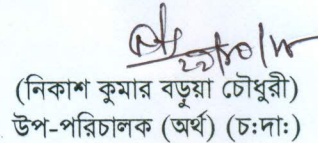 (নিকাশ কুমার বড়ুয়া চৌধুরী)
উপ-পরিচালক (অর্থ) (চ:দা:)